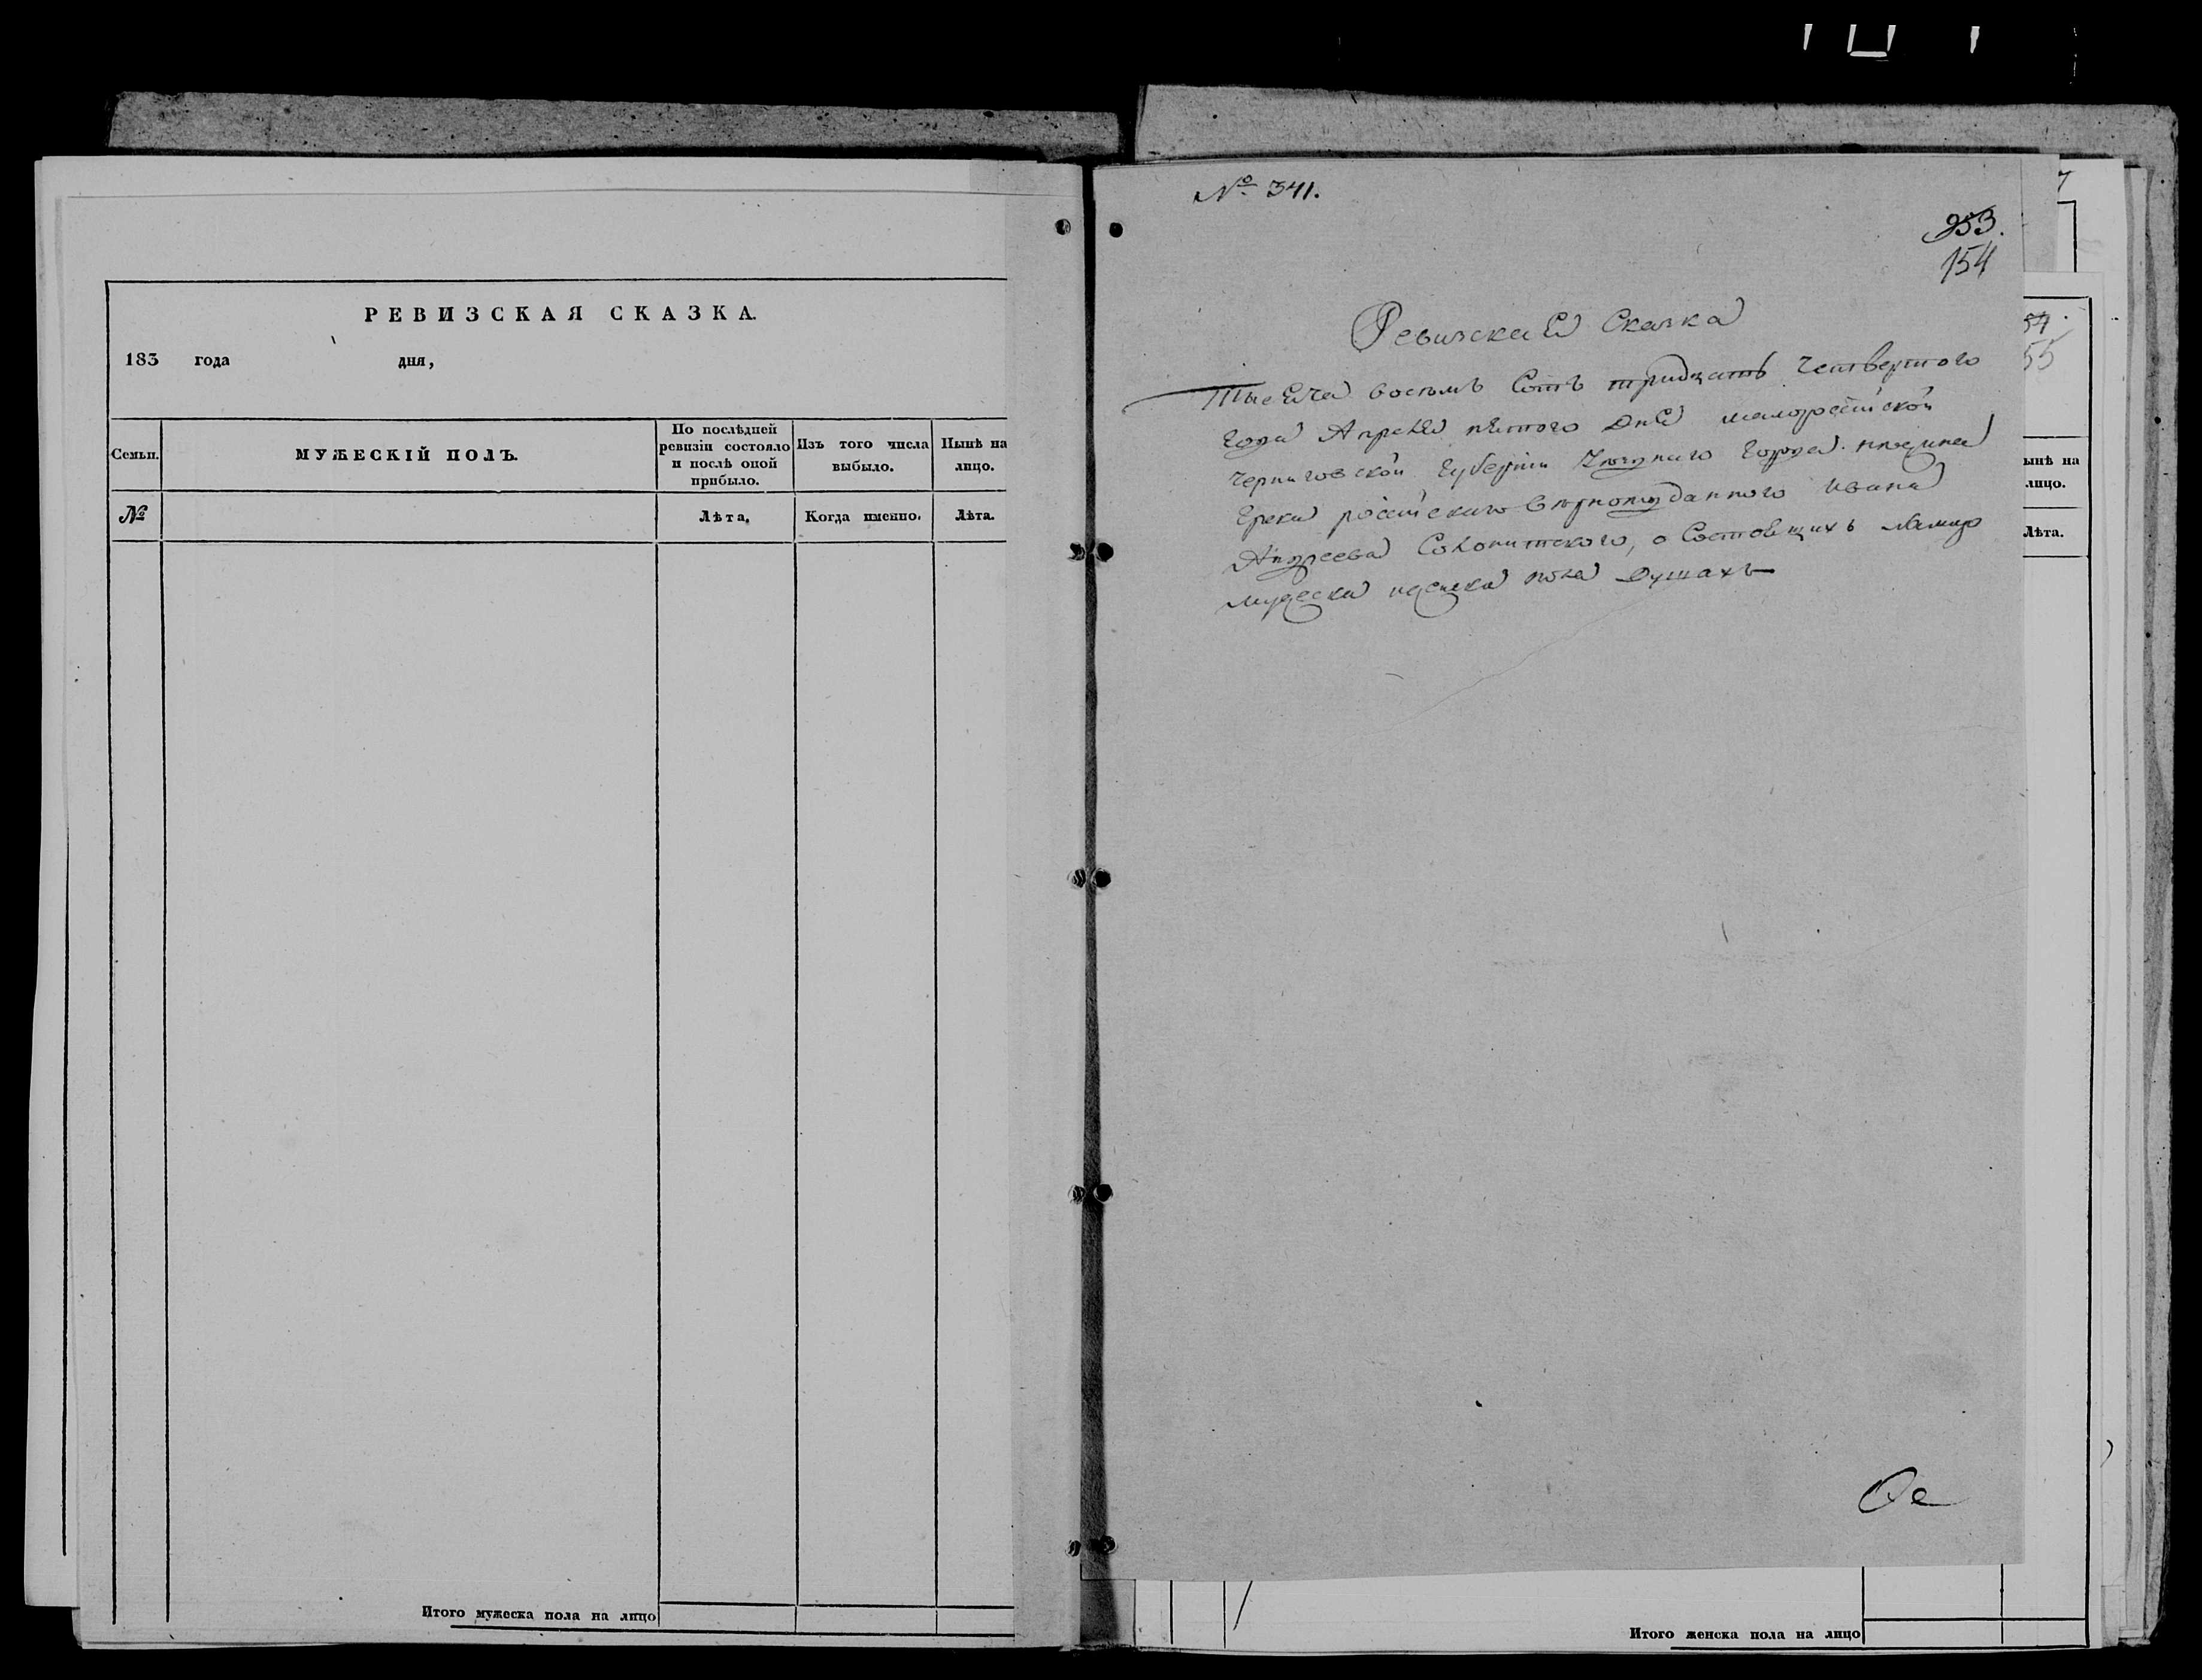 РЕВИЗСКАЯ СКАЗКА.
183 года дня,
Семьи.
МУЖЕСКІЙ ПОЛЪ.
По послѣдней ревизіи состояло и послѣ оной прибыло.
Изъ того числа выбыло.
Нынѣ на лицо.
№
Лѣта.
Когда именно.
Лѣта.
Итого мужеска пола на лицо
№ 341.
353.
154
Ревизская Сказка
Тысяча восемь Сотъ тридцать четвертого
года Апреля пятого Дня малоросійской
черниговской губерніи города нежина
грека російскаго вернопод данного ивана
Андреева о Состоящихъ
мужеска иженска пола Душахъ
Ое
54.
55
ынѣ на
лицо.
Лѣта.
Итого женска пола на лицо